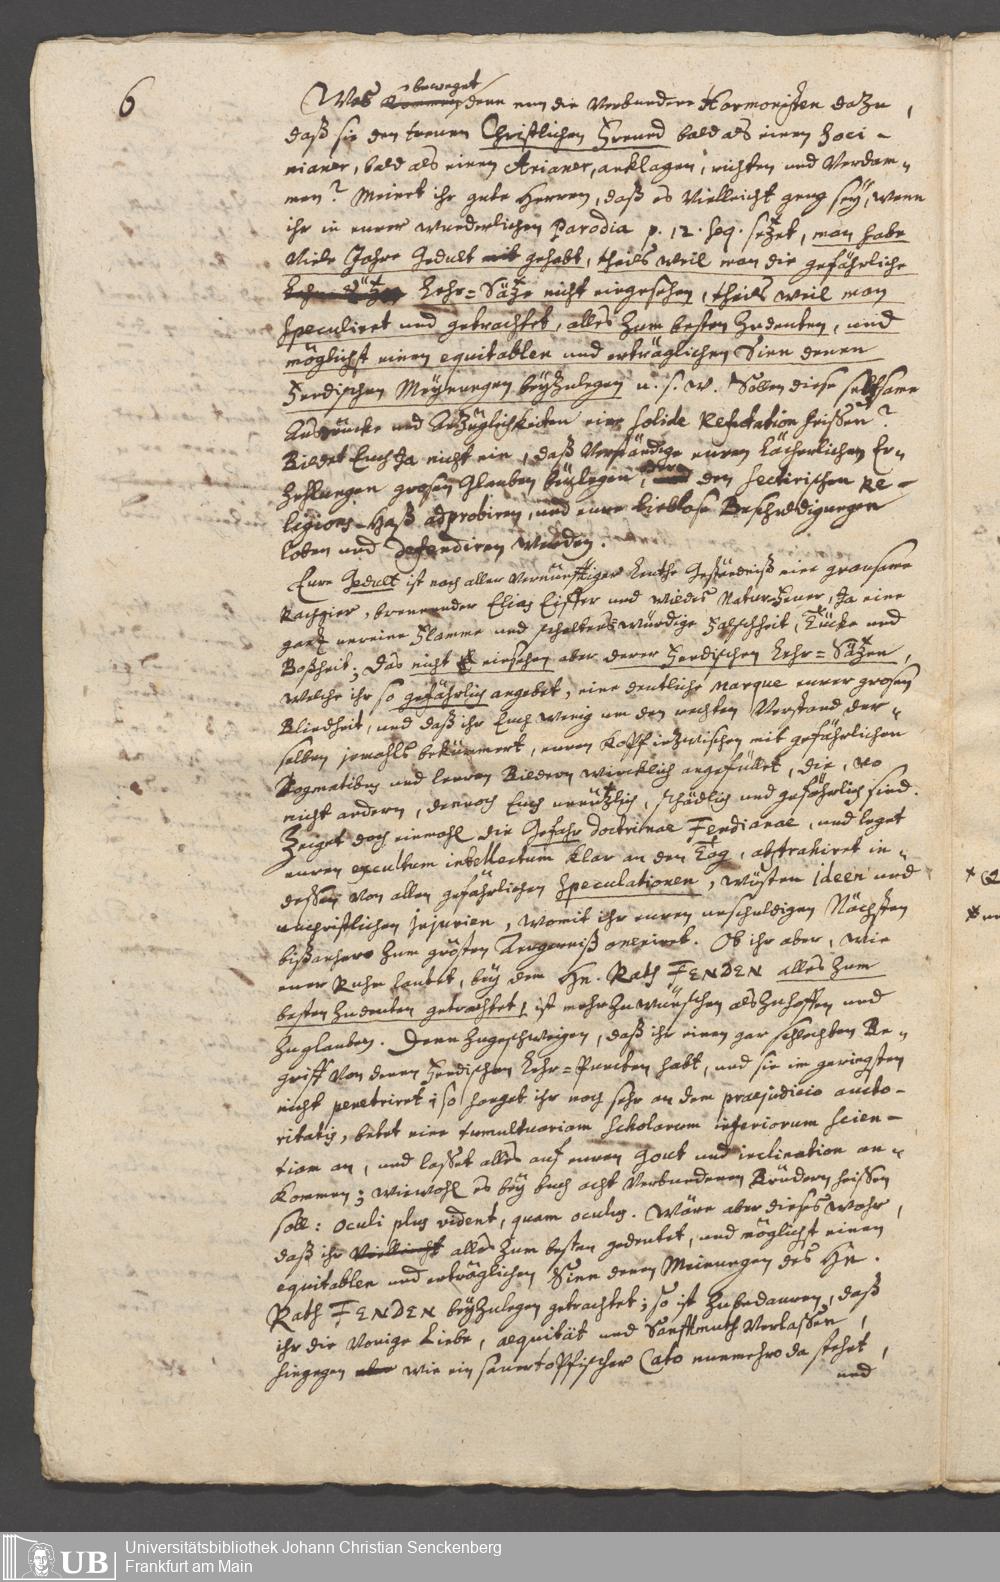 6
beweget
Was kommen denn nun die Verbundene Harmonisten dazu,
daß sie den treuen Christlichen Freund bald als einen Soci-
nianer, bald als einen Arianer, anklagen, richten und Verdam-
men? Meinet ihr gute Herren, daß es Vielleicht genug seÿ, wenn
ihr in eurer wunderlichen Parodia p. 12. seq. setzet, man habe
Viele Jahre Gedult mit gehabt, theils weil man die gefährliche
Lehr-Sätze nicht eingesehen, theils weil man
speculiret und getrachtet, alles zum besten zudeuten, und
möglichst einen equitablen und erträglichen Sinn denen
Fendischen Meÿnungen beÿzulegen u. s. w. Sollen diese seltsame
Ausdrücke und Anzüglichkeiten eine solide Refutation heissen?
Bildet Euch Ja nicht ein, daß Verständige euren Lächerlichen Er-
zehlungen grosen Glauben beÿlegen, den sectirischen Re-
ligions-Haß adprobiren, und eure Lieblose Beschuldigungen
loben und defendiren werden.
Eure Gedult ist nach aller Vernünfftiger Leuthe Geständniß eine grausame
Rachgier, brennender Elias Eiffer und wildes Natur-Feuer, Ja eine
gantz unreine Flamme und scheltenswürdige Falschheit, Tücke und
Boßheit; Das nicht einsehen aber derer Fendischen Lehr-Sätzen,
welche ihr so gefährlich angebet, eine deutliche Marque eurer grosen
Blindheit, und daß ihr Euch wenig um den rechten Verstand der-
selben jemahls bekümmert, euren Kopff inzwischen mit gefährlichen
Dogmatiben und leeren Bildern würcklich angefüllet, die, wo
nicht andern, dennoch Euch unnützlich, schädlich und gefährlich sind.
Zeiget doch einmahl die Gefahr doctrinae Fendianae, und leget
euren excultum intellectum klar an den Tag, abstrahiret in-
dessen von allen gefährlichen Speculationen, wüsten ideen und
unchristlichen injurien, womit ihr euren unschuldigen Nächsten
bißanhero zum grösten Aergerniß oneriret. Ob ihr aber, wie
euer Ruhm lautet, beÿ dem Hn. Rath FENDEN alles zum
besten zudeuten getrachtet, ist mehr zu wünschen als zuhoffen und
zuglauben. Dann zugeschweigen, daß ihr einen gar schlechten Be-
griff von denen Fendischen Lehr-Puncten habt, und sie im geringsten
nicht penetriret; so hanget ihr noch sehr an dem praejudicio aucto-
ritatis, betet eine tumultuariam scholarum inferiorum scien-
tiam an, und lasset alles auf euren Gout und inclination an-
kommen; wiewohl es beÿ Euch acht Verbundenen Brüdern heissen
soll: oculi plus vident, quam oculus. Wäre aber dieses wahr,
daß ihr Vielleicht alles zum besten gedeutet, und möglichst einen
equitablen und erträglichen Sinn denen Meinungen des Hn.
Rath FENDEN beÿzulegen getrachtet; so ist zubedauren, daß
ihr die Vorige Liebe, aequität und Sanfftmuth Verlassen,
hingegen aber wie ein sauertöpffischer Cato nunmehro da stehet,
und
Universitätsbibliothek Johann Christian Senckenberg
Frankfurt am Main
UB